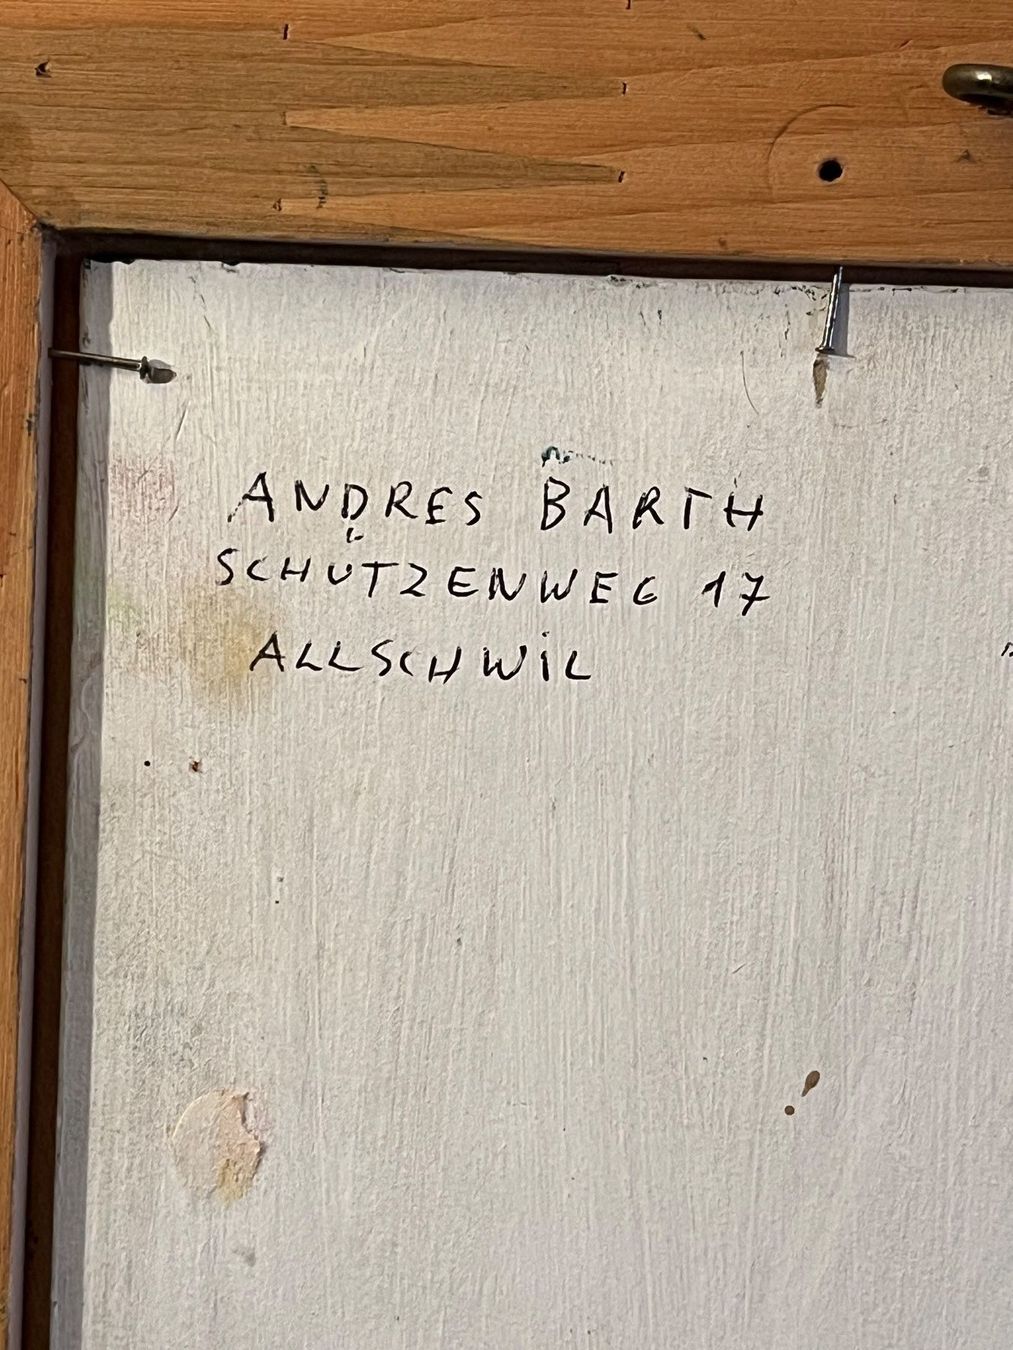 ANDRES BARTH
SCHÜTZENWEG 17
ALLSCHWiL